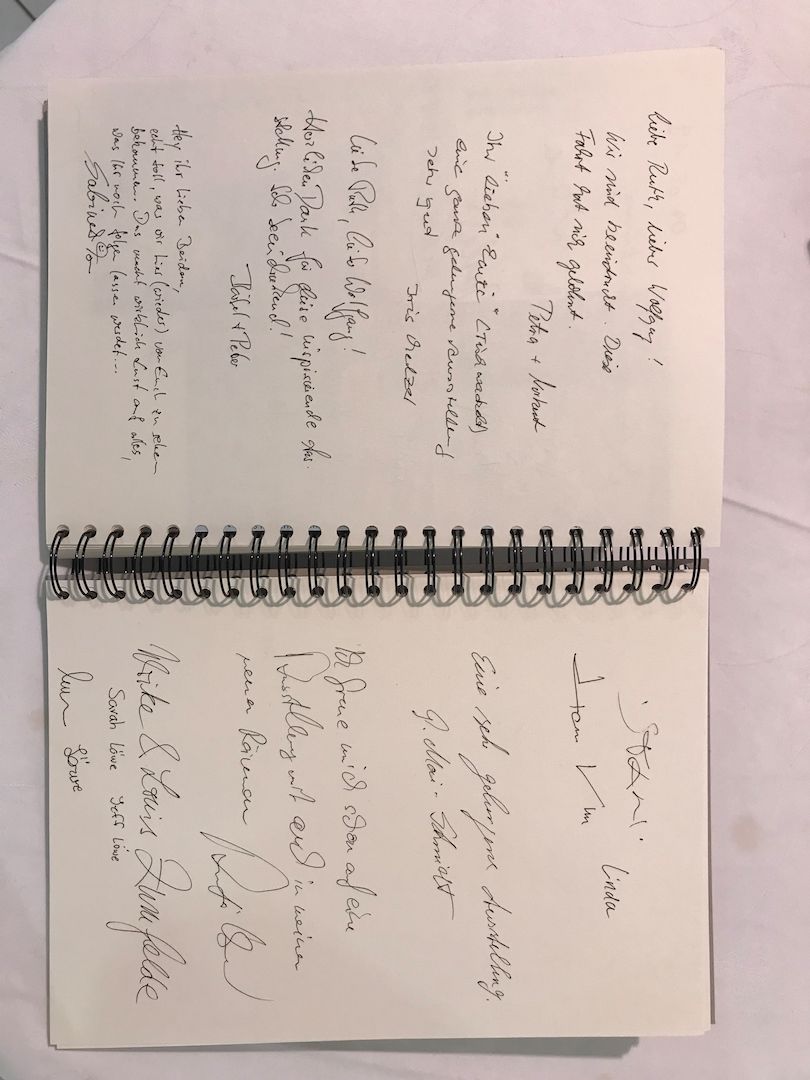 Liebe Ruth, lieber Wolfgang!
Wir sind beeindruckt. Diese
Fahrt hat sich gelohnt.
Petra + Norbert
Ihr "Lieben"
eine ganze gelungene Ausstellung
sehr gut
Iris
Liebe Ruth, lieber Wolfgang!
Herzlichen Dank für diese inspirierende Aus-
stellung. Sehr beeindruckend!
Bärbel + Peter
Hey ihr lieben Beiden,
echt toll, was wir hier (wieder) von Euch zu sehen
bekommen. Das macht wirklich Lust auf alles,
was Ihr noch folgen lassen werdet...
Linda
Eine sehr gelungene Ausstellung.
G. Mai-Schmidt
Ich freue mich schon auf eine
Ausstellung mit euch in meinen
neuen Räumen
& Louis
Sarah Löwe Jeff Löwe
Löwe